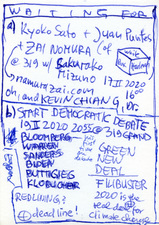 WAITING FOR
a) Kyoko Sato + Juan Puntes
+ ZAI NOMURA (of
@ 319 w/ Sakurako
Mizuno 17 II 2020
nomurazai.com
oh, and KEVIN CHANG, Dr.
b) START DEMOCRATIC DEBATE
19 II 2020 2055 @ 319 GRAND
BLOOMBERG
WARREN
SANDERS
BIDEN
BUTTIGIEG
KLOBUCHAR
GREEN
NEW
DEAL
FILIBUSTER
REDLINING?
deadline!
2020 is the
real debt for
climate change